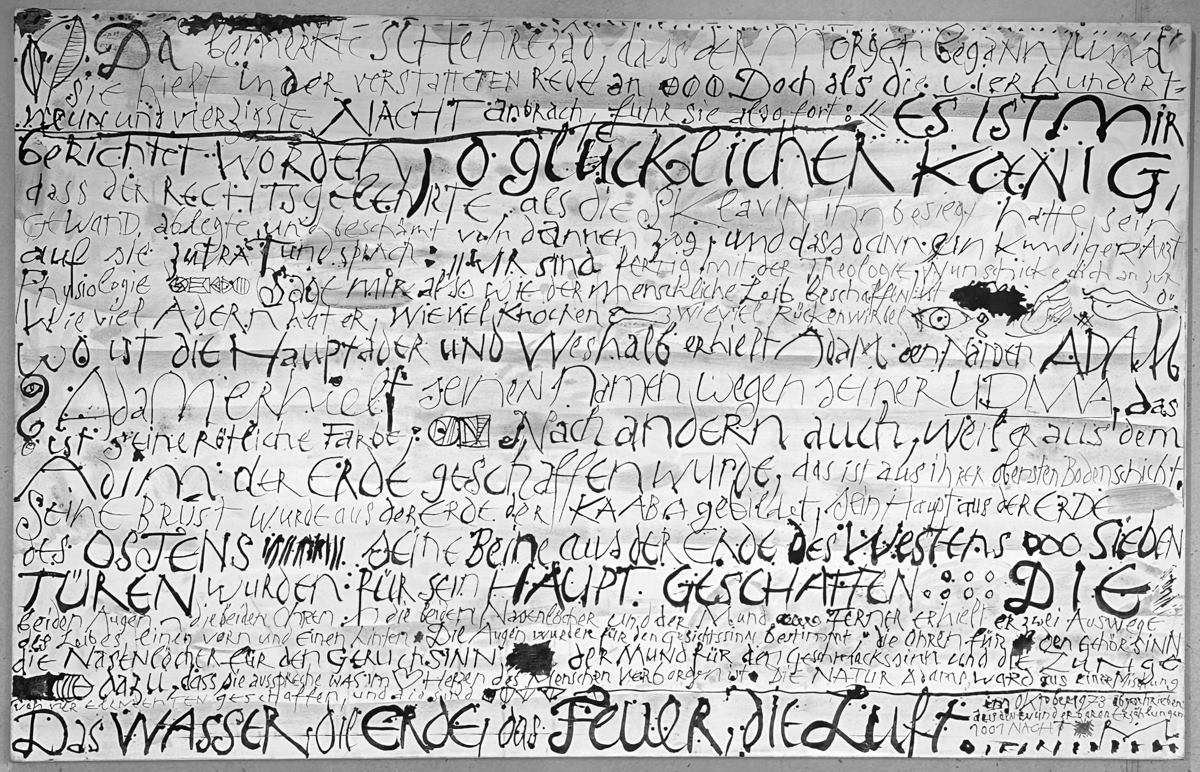 Da bemerkte SCHEHREZAD, dass der Morgen begann, und
sie hielt in der verstatteten Rede an Doch als die vierhundert-
neunundvierzigste NACHT anbrach, fuhr sie also fort: « ES IST MIR
berichtet worden, o glücklicher KŒNIG,
dass der RECHTSgelehrte, als die SKlavin ihn besiegt hatte, sein
GEWAND ablegte und beschämt von dannen zog; und dass dann ein kundiger Arzt
auf sie zutrat und sprach: „WIR sind fertig mit der Theologie, Nun schicke dich an zur
Physiologie Sage mir also wie der menschliche Leib beschaffen ist
Wie viel Adern hat er, wieviel Knochen wieviel Rückenwirbel
WO ist die Hauptader und Weshalb erhielt Adam den Namen ADAM
Adam erhielt seinen Namen wegen seiner UDMA, das
ist seine rötliche Farbe; Nach andern auch, weil er aus dem
Adim der ERDE geschaffen wurde, das ist aus ihrer obersten Bodenschicht.
Seine BRUST wurde aus der ERDE der KAABA gebildet, sein Haupt aus der ERDE
des OSTENS seine Beine aus der ERDE des Westens Sieben
TÜREN wurden für sein HAUPT GESCHAFFEN DIE
beiden Augen, die beiden Ohren, die beiden Nasenlöcher und der Mund FERNER erhielt er zwei Auswege
des Leibes, einen vorn und einen hinten. Die Augen wurden für den Gesichtssinn bestimmt, die Ohren für den GehörSINN
die NASENLÖCHER für den GERUCHSINN, der MUND für den Geschmacksinn und die ZUNGE
dazu, dass die ausspreche was im Herzen des Menschen verborgen ist. Die NATUR Adams ward aus einer Mischung
von vier ELEMENTEN geschaffen und die sind
Das WASSER, die ERDE, das Feuer, die Luft
im Oktober 1973 abgeschrieben
aus den Erzählungen
1001 NACHT